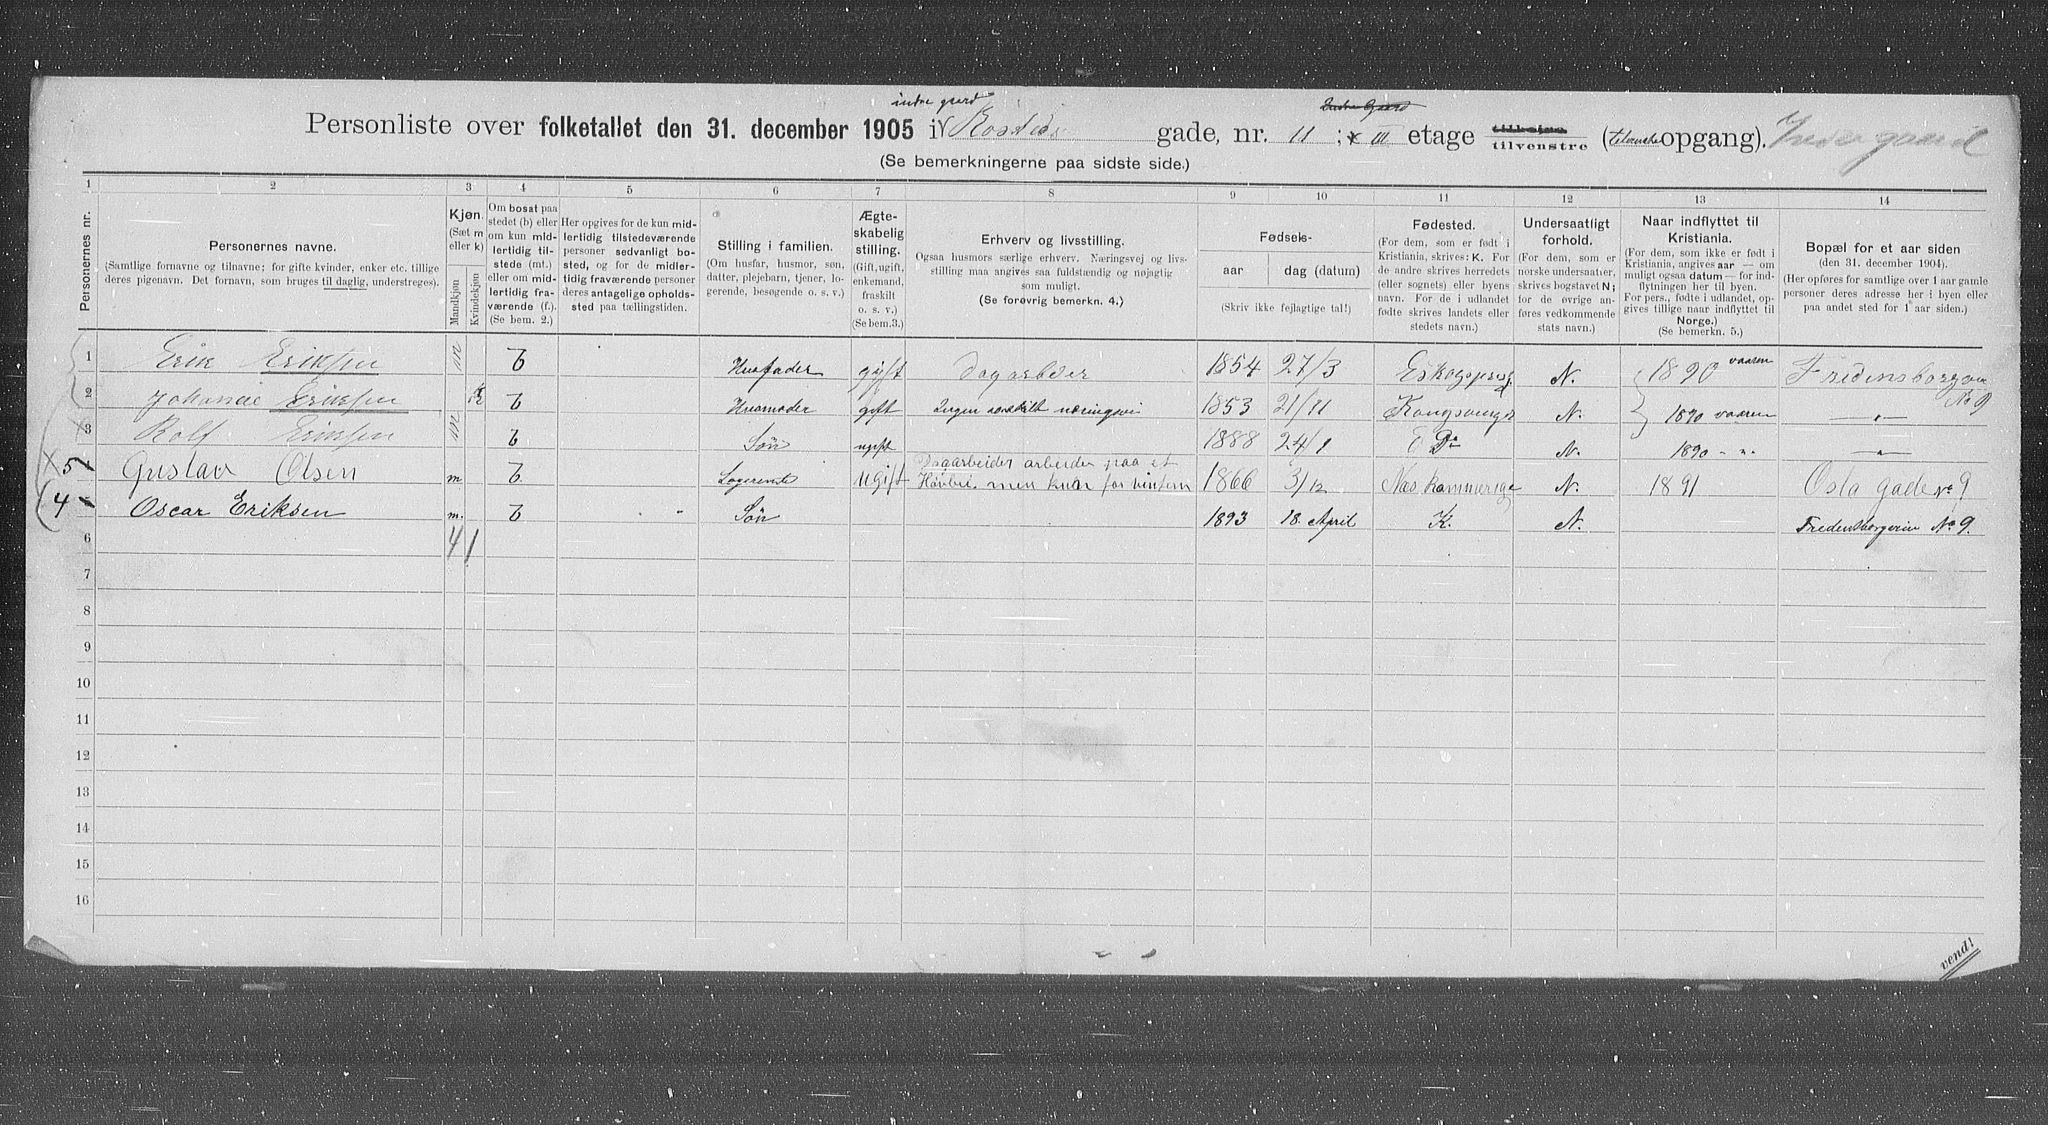 indre gaard
Personliste over folketallet den 31. december 1905 i Rosteds gade, nr. 11 ; III etage tilhøire tilvenstre ( opgang). Indre gaard
(Se bemerkningerne paa sidste side.)
1 2 3 4 5 6 7 8 9 10 11 12 13 14
Personernes nr.
Personernes navne.
(Samtlige fornavne og tilnavne; for gifte kvinder, enker etc. tillige
deres pigenavn. Det fornavn, som bruges til daglig, understreges).
Kjøn.
(Sæt m
eller k)
Mandkjøn
Kvindekjøn
Om bosat paa
stedet (b) eller
om kun mid-
lertidig til-
stede (mt.)
eller om mid-
lertidig fra-
værende (f.).
(Se bem. 2.)
Her opgives for de kun mid-
lertidig tilstedeværende
personer sedvanligt bo-
sted, og for de midler-
tidig fraværende personer
deres antagelige opholds-
sted paa tællingstiden.
Stilling i familien.
(Om husfar, husmor, søn,
datter, plejebarn, tjener, lo-
gerende, besøgende o. s. v.)
Ægte-
skabelig
stilling.
(Gift, ugift,
enkemand,
fraskilt
o. s. v.)
(Se bem.3.)
Erhverv og livsstilling.
Ogsaa husmors særlige erhverv. Næringsvej og livs-
stilling maa angives saa fuldstændig og nøjagtig
som muligt.
(Se forøvrig bemerkn. 4.)
Fødsels-
aar dag (datum)
(Skriv ikke fejlagtige tal!)
Fødested.
(For dem, som er født i
Kristiania, skrives: K. For
de andre skrives herredets
(eller sognets) eller byens
navn. For de i udlandet
fødte skrives landets eller
stedets navn.)
Undersaatligt
forhold.
(For norske undersaatter,
skrives bogstavet N;
for de øvrige an-
føres vedkommende
stats navn.)
Naar indflyttet til
Kristiania.
(For dem, som ikke er født i
Kristiania, angives aar — om
muligt ogsaa datum — for ind-
flytningen her til byen.
For pers., fødte i udlandet, op-
gives tillige naar indflyttet til
Norge.)
(Se bemerkn. 5.)
Bopæl for et aar siden
(den 31. december 1904).
(Her opføres for samtlige over 1 aar gamle
personer deres adresse her i byen eller
paa andet sted for 1 aar siden.)
1 Erik Eriksen m b Husfader gift Dagarbeider 1854 27/3 N. 1890 vaaren
2 Johanne Eriksen k b Husmoder gift Ingen særskilt næringsvei 1853 21/11 Kongsvinger N. 1890 vaaren — " — No 9
3 Rolf Eriksen m b Søn ugift 1888 24/1 Do N. 1890 — " — — " —
5 Gustav Olsen m b Logerende ugift Dagarbeider arbeider paa et men kun for vintern 1866 3/12 N. 1891 Osla gade No 9
4 Oscar Eriksen m. b " Søn 1893 18. April K. N. Fredensborgvein No 9.
6 4 1
7
8
9
10
11
12
13
14
15
16
vend!